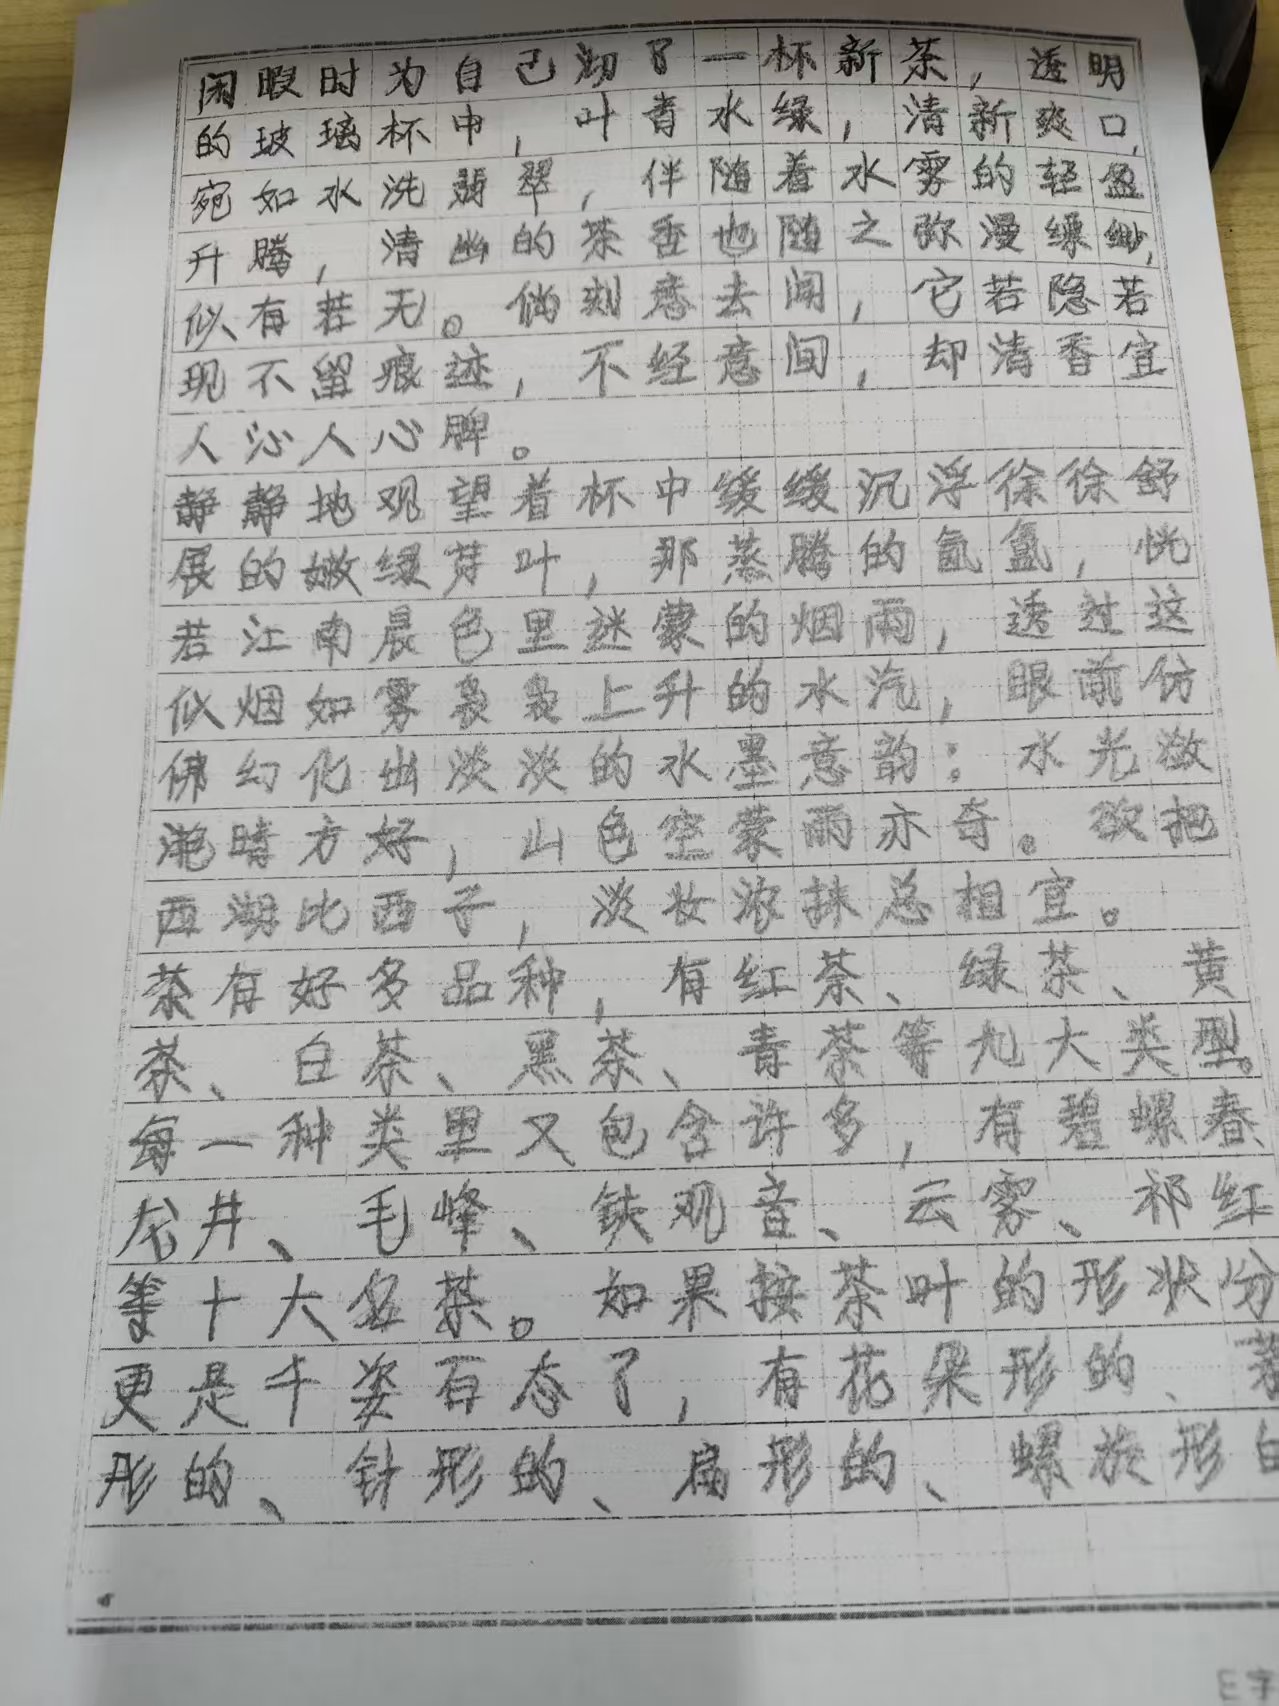 闲暇时为自己沏了一杯新茶，透明
的玻璃杯中，叶青水绿，清新爽口，
宛如水洗翡翠，伴随着水雾的轻盈
升腾，清幽的茶香也随之弥漫缥缈，
似有若无。倘刻意去闻，它若隐若
现不留痕迹，不经意间，却清香宜
人沁人心脾。
静静地观望着杯中缓缓沉浮徐徐舒
展的嫩绿芽叶，那蒸腾的氤氲，恍
若江南晨色里迷蒙的烟雨，透过这
似烟如雾袅袅上升的水汽，眼前仿
佛幻化出淡淡的水墨意韵：水光潋
滟晴方好，山色空蒙雨亦奇。欲把
西湖比西子，淡妆浓抹总相宜。
茶有好多品种，有红茶、绿茶、黄
茶、白茶、黑茶、青茶等九大类型。
每一种类里又包含许多，有碧螺春
龙井、毛峰、铁观音、云雾、祁红
等十大名茶。如果按茶叶的形状分
更是千姿百态了，有花朵形的、
形的、针形的、扁形的、螺旋形